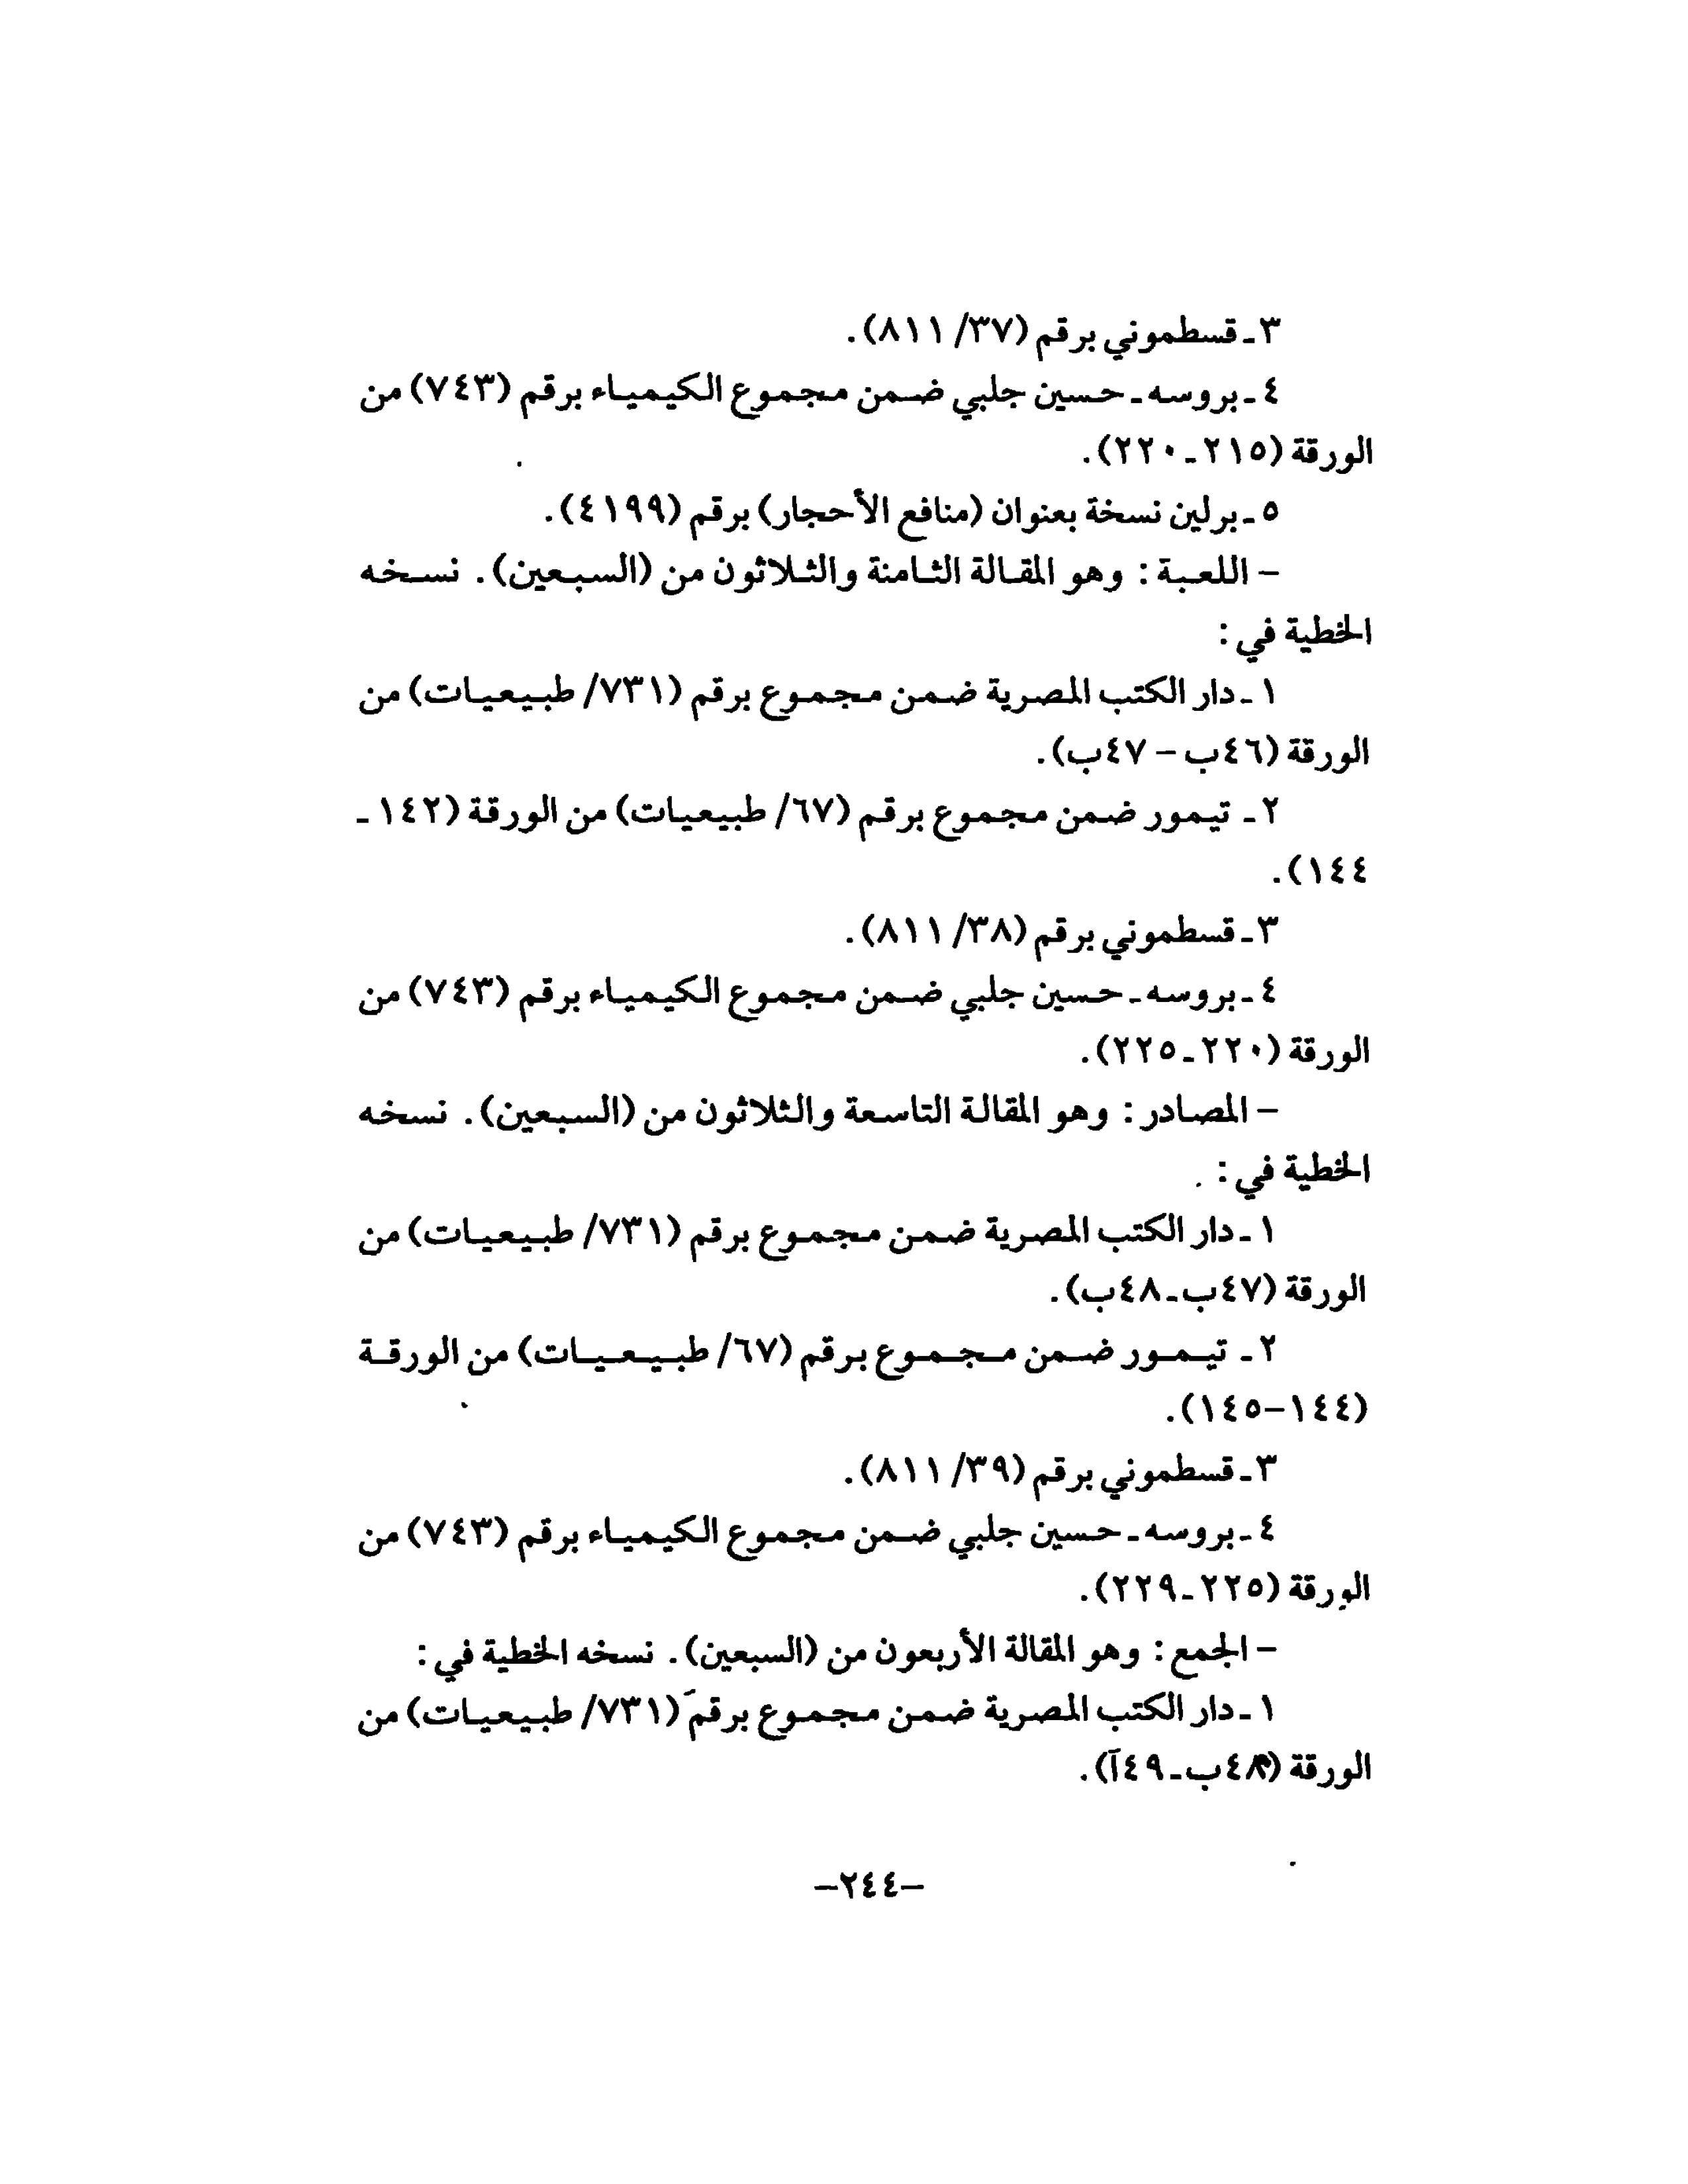 ٣ ـ قسطموني برقم (٣٧/ ٨١١).
٤ ـ بروسه ـ حسين جلبي ضمن مجموع الكيمياء برقم (٧٤٣) من
الورقة (٢١٥ـ٢٢٠).
٥ ـ برلين نسخة بعنوان (منافع الأحجار) برقم (٤١٩٩).
– اللعبة : وهو المقالة الثامنة والثلاثون من (السبعين). نسخه
الخطية في :
١ ـ دار الكتب المصرية ضمن مجموع برقم (٧٣١/ طبيعيات) من
الورقة (٤٦ب – ٤٧ب).
٢ ـ تيمور ضمن مجموع برقم (٦٧/ طبيعيات) من الورقة (١٤٢ ـ
١٤٤).
٣ ـ قسطموني برقم (٣٨/ ٨١١).
٤ ـ بروسه ـ حسين جلبي ضمن مجموع الكيمياء برقم (٧٤٣) من
الورقة (٢٢٠ـ٢٢٥).
– المصادر : وهو المقالة التاسعة والثلاثون من (السبعين). نسخه
الخطية في :
١ ـ دار الكتب المصرية ضمن مجموع برقم (٧٣١/ طبيعيات) من
الورقة (٤٧ب ـ ٤٨ب).
٢ ـ تيمور ضمن مجموع برقم (٦٧/ طبيعيات) من الورقة
(١٤٤–١٤٥).
٣ ـ قسطموني برقم (٣٩/ ٨١١).
٤ ـ بروسه ـ حسين جلبي ضمن مجموع الكيمياء برقم (٧٤٣) من
الورقة (٢٢٥ـ٢٢٩).
– الجمع : وهو المقالة الأربعون من (السبعين). نسخه الخطية في :
١ ـ دار الكتب المصرية ضمن مجموع برقم (٧٣١/ طبيعيات) من
الورقة (٤٨ب ـ ٤٩آ).
–٢٤٤–